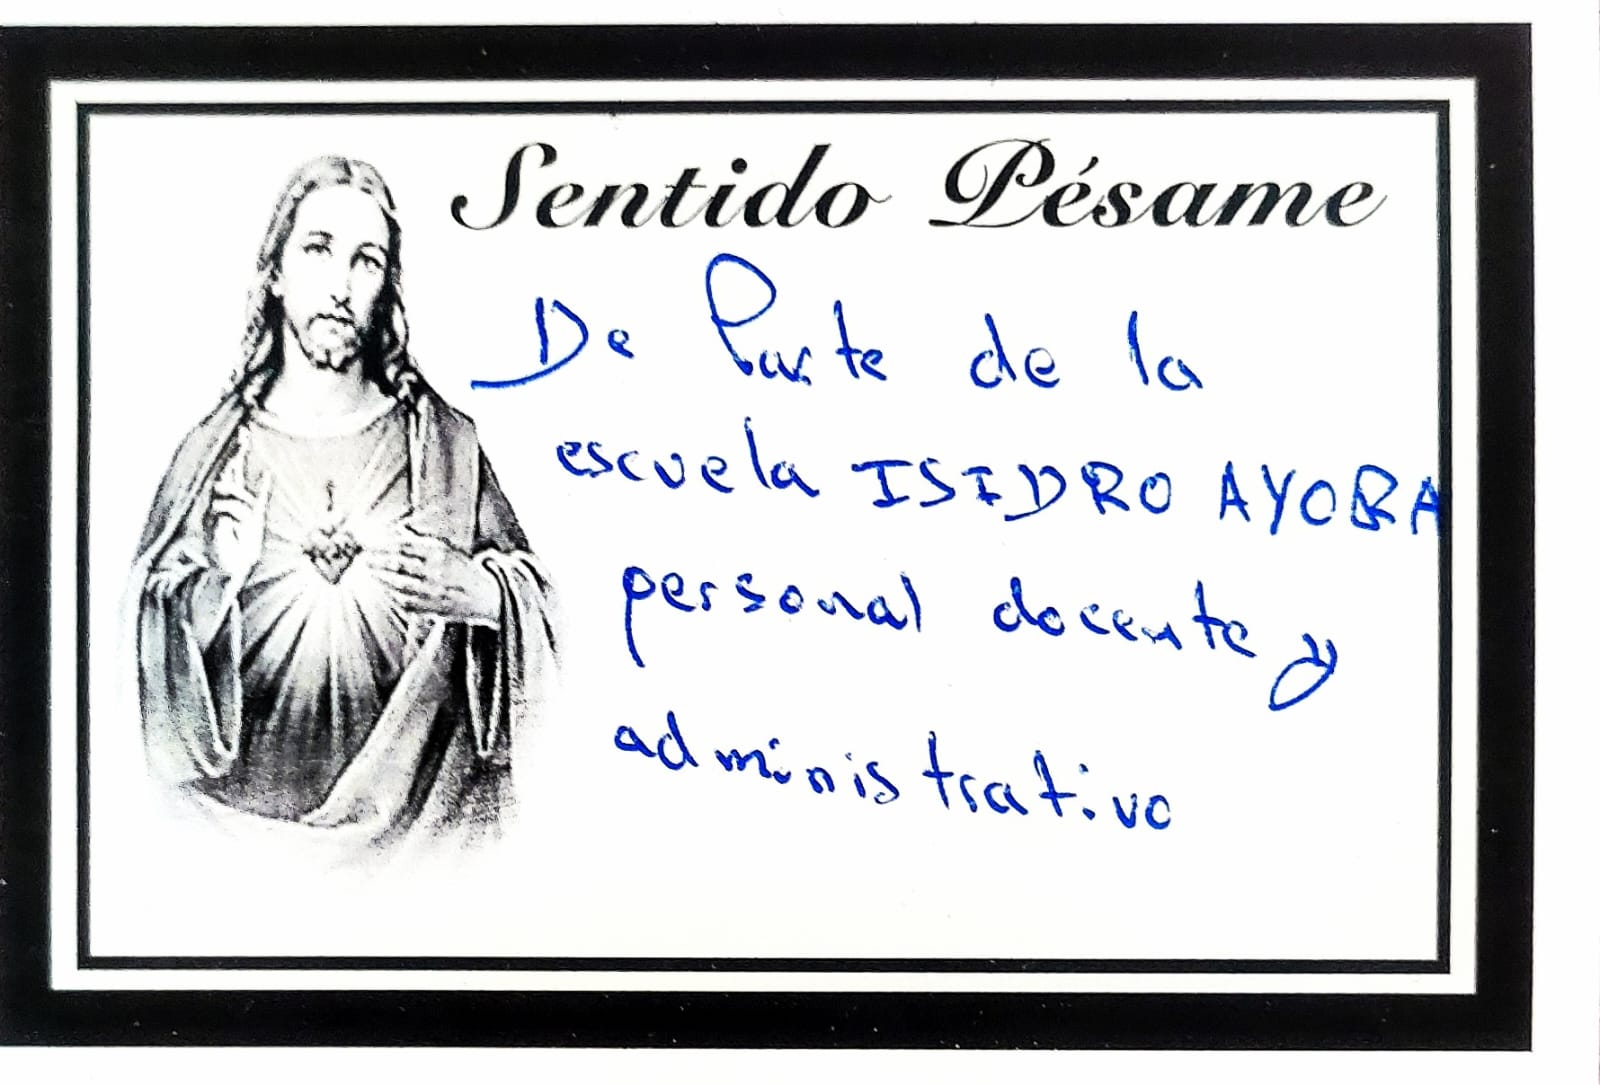 Sentido Pésame
De Parte de la
escuela ISIDRO AYORA
personal docente y
administrativo